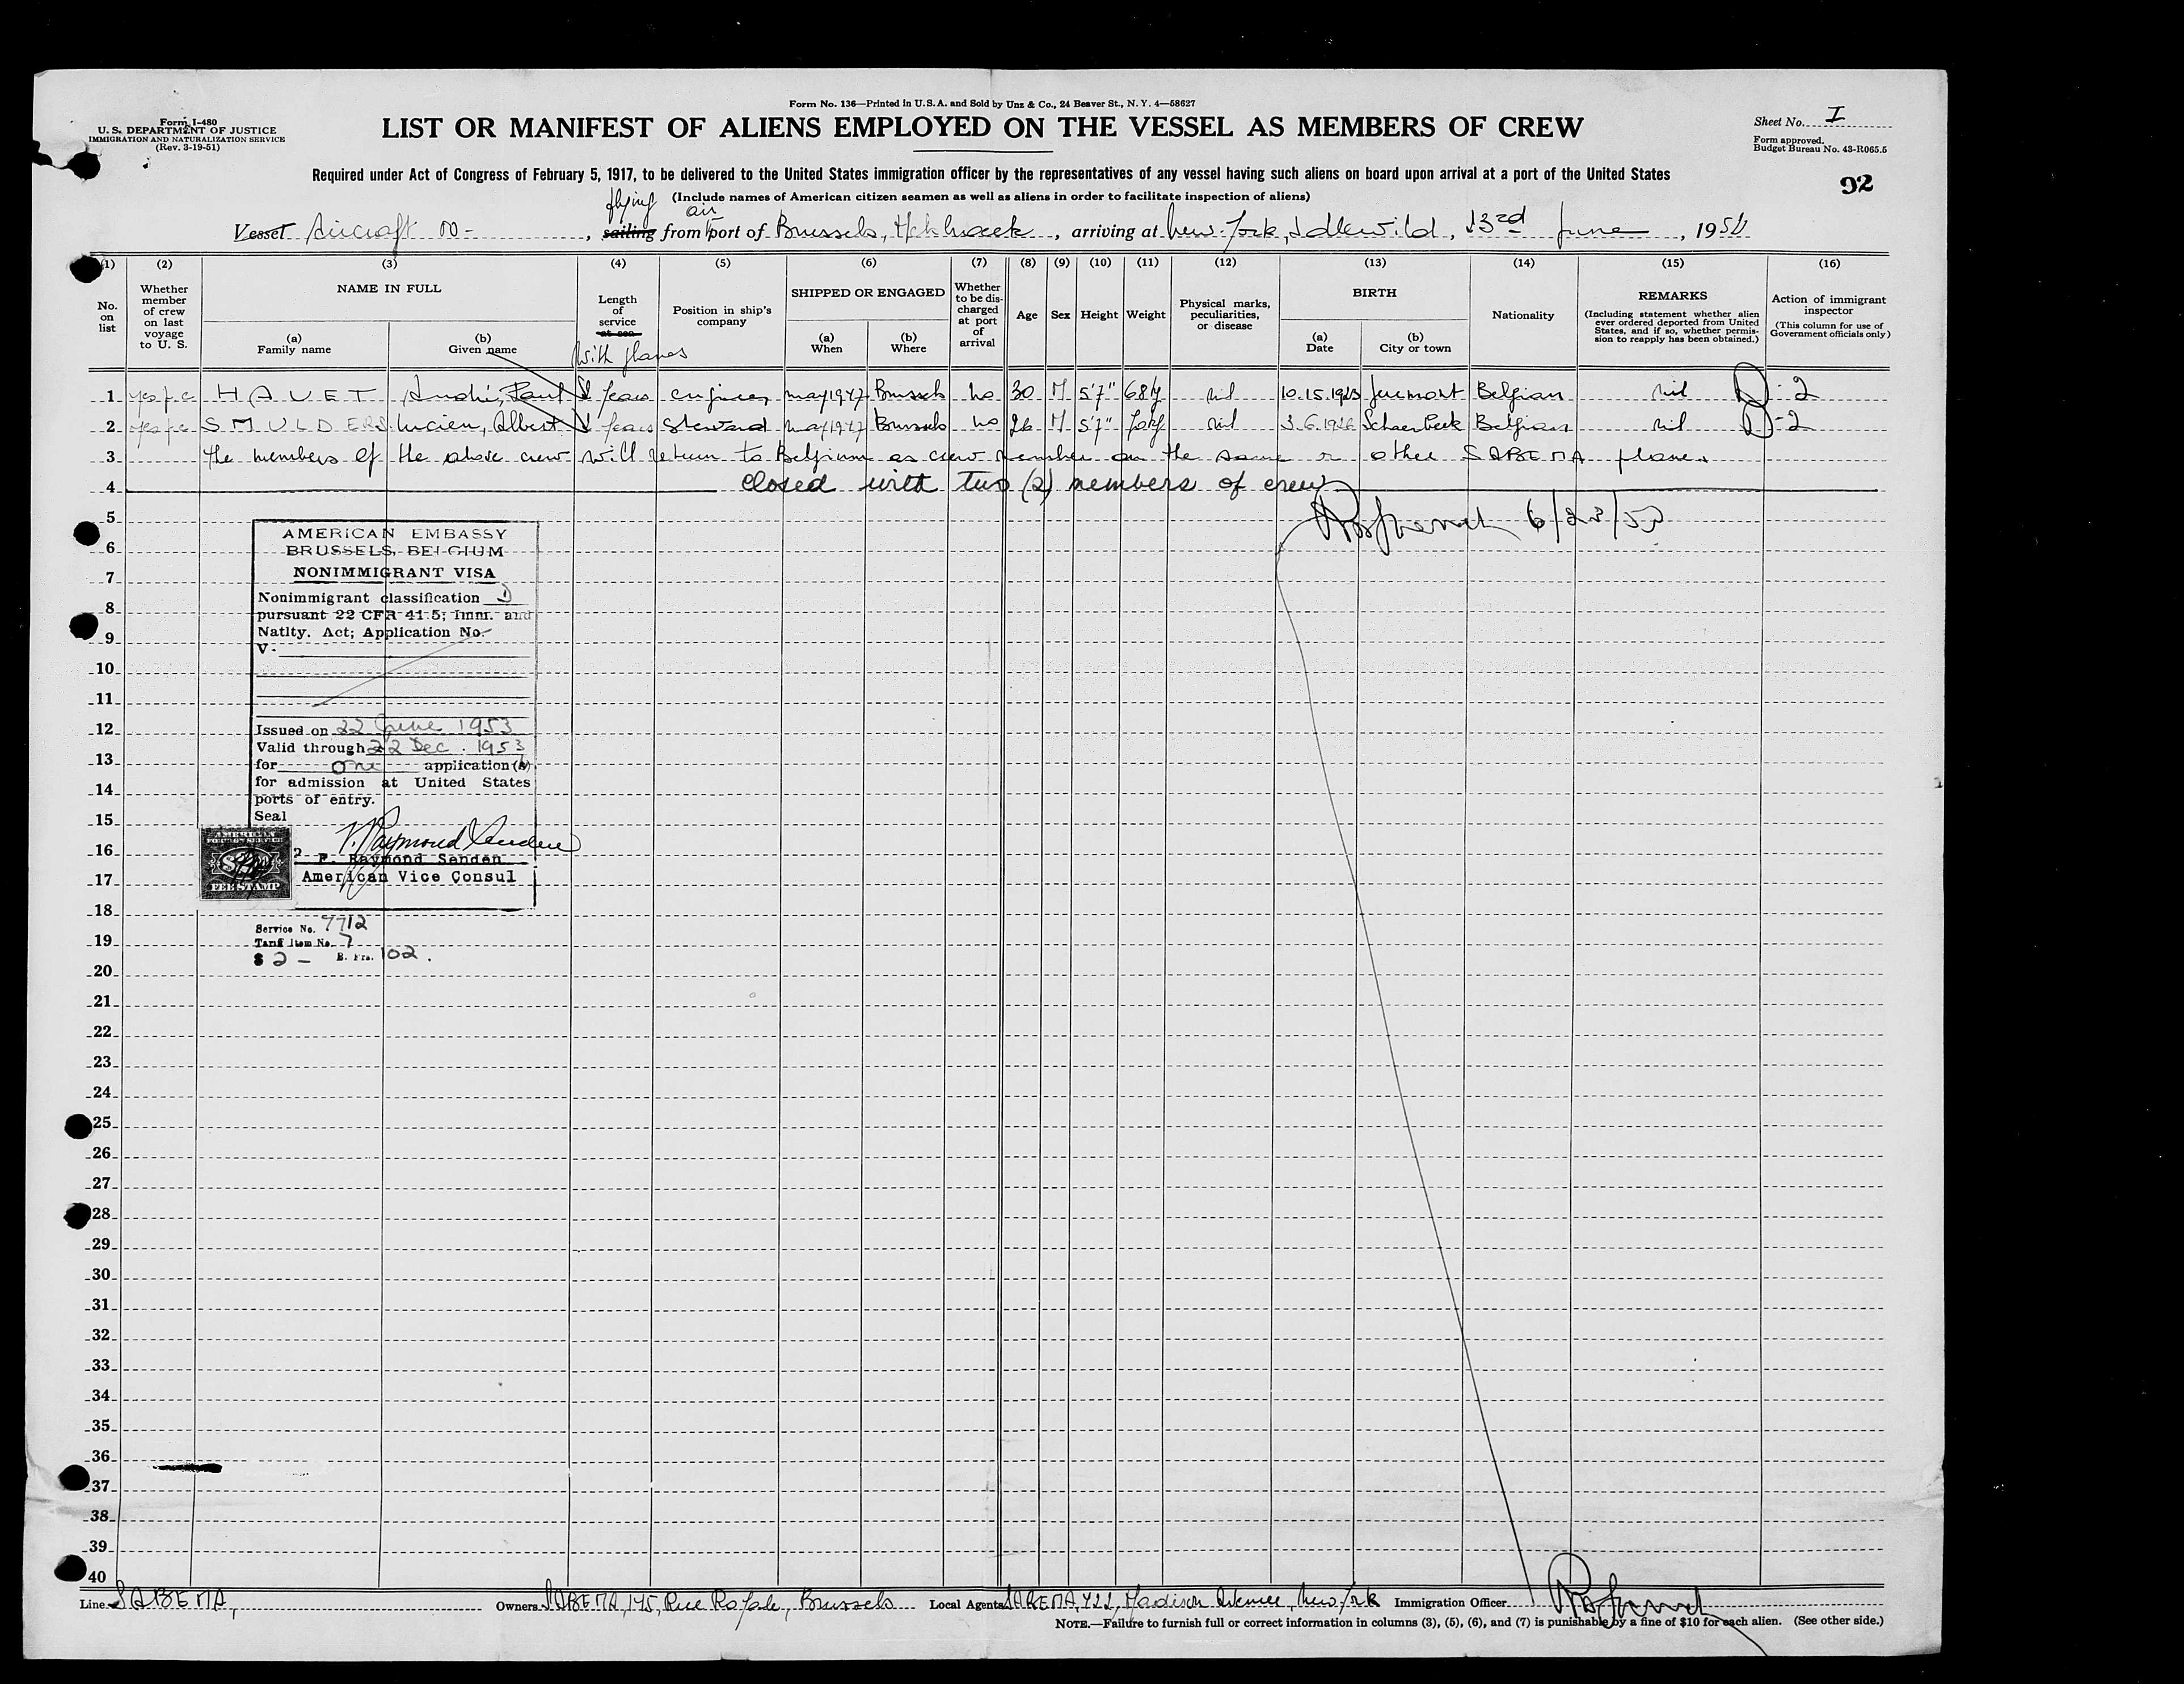 Form No. 136—Printed in U.S.A. and Sold by Unz & Co., 24 Beaver St., N. Y. 4—58627
Form I-480
U. S. DEPARTMENT OF JUSTICE
IMMIGRATION AND NATURALIZATION SERVICE
(Rev. 3-19-51)
LIST OR MANIFEST OF ALIENS EMPLOYED ON THE VESSEL AS MEMBERS OF CREW
Sheet No. I
Form approved.
Budget Bureau No. 43-R065.5
Required under Act of Congress of February 5, 1917, to be delivered to the United States immigration officer by the representatives of any vessel having such aliens on board upon arrival at a port of the United States
92
(Include names of American citizen seamen as well as aliens in order to facilitate inspection of aliens)
flying air
Vessel Aircraft OO- , sailing from port of Brussels, , arriving at New-York, Idlewild, 23rd June , 195
(1) (2) (3) (4) (5) (6) (7) (8) (9) (10) (11) (12) (13) (14) (15) (16)
No. on list
Whether member of crew on last voyage to U. S.
NAME IN FULL
(a) Family name
(b) Given name
Length of service at sea
with planes
Position in ship's company
SHIPPED OR ENGAGED
(a) When
(b) Where
Whether to be discharged at port of arrival
Age
Sex
Height
Weight
Physical marks, peculiarities, or disease
BIRTH
(a) Date
(b) City or town
Nationality
REMARKS
(Including statement whether alien ever ordered deported from United States, and if so, whether permission to reapply has been obtained.)
Action of immigrant inspector
(This column for use of Government officials only)
1 yes HAVET André, Paul years engineer may 1947 Brussels no 30 M 5'7" 68 kg nil 10.15.1923 Jeumont Belgian nil D-2
2 yes SMULDERS Lucien, Albert years Steward may 1947 Brussels no 26 M 5'7" 70 kg nil 3.6.1926 Schaerbeek Belgian nil D-2
3 the members of the above crew will return to Belgium as crew member on the same or other SABENA planes.
4 closed with two (2) members of crew
5 6/23/53
6
7
8
9
10
11
12
13
14
15
16
17
18
19
20
21
22
23
24
25
26
27
28
29
30
31
32
33
34
35
36
37
38
39
40
AMERICAN EMBASSY
BRUSSELS, BELGIUM
NONIMMIGRANT VISA
Nonimmigrant classification D
pursuant 22 CFR 41.5; Imm. and
Natlty. Act; Application No.
V-
Issued on 22 June 1953
Valid through 22 Dec. 1953
for one application(s)
for admission at United States
ports of entry.
Seal
F. Raymond Senden
F. Raymond Senden
American Vice Consul
AMERICAN
FOREIGN SERVICE
FEE STAMP
Service No. 7712
Tariff Item No. 7
$ 2 - B. Frs. 102.
Line SABENA, Owners SABENA, 145, Rue Royale, Brussels Local Agents SABENA, 422, Madison Avenue, New-York Immigration Officer
NOTE.—Failure to furnish full or correct information in columns (3), (5), (6), and (7) is punishable by a fine of $10 for each alien. (See other side.)